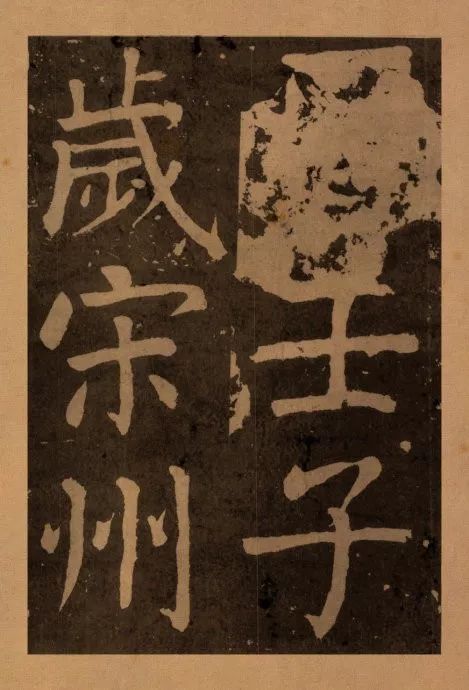 壬子
歲宋州